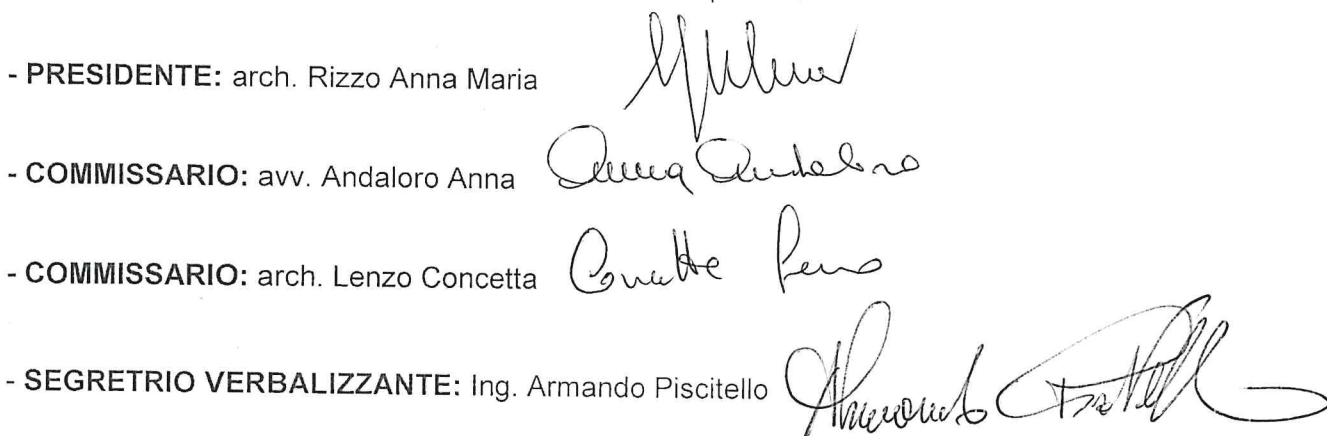 - PRESIDENTE: arch. Rizzo Anna Maria
- COMMISSARIO: avv. Andaloro Anna Anna Andaloro
- COMMISSARIO: arch. Lenzo Concetta
- SEGRETRIO VERBALIZZANTE: Ing. Armando Piscitello Armando